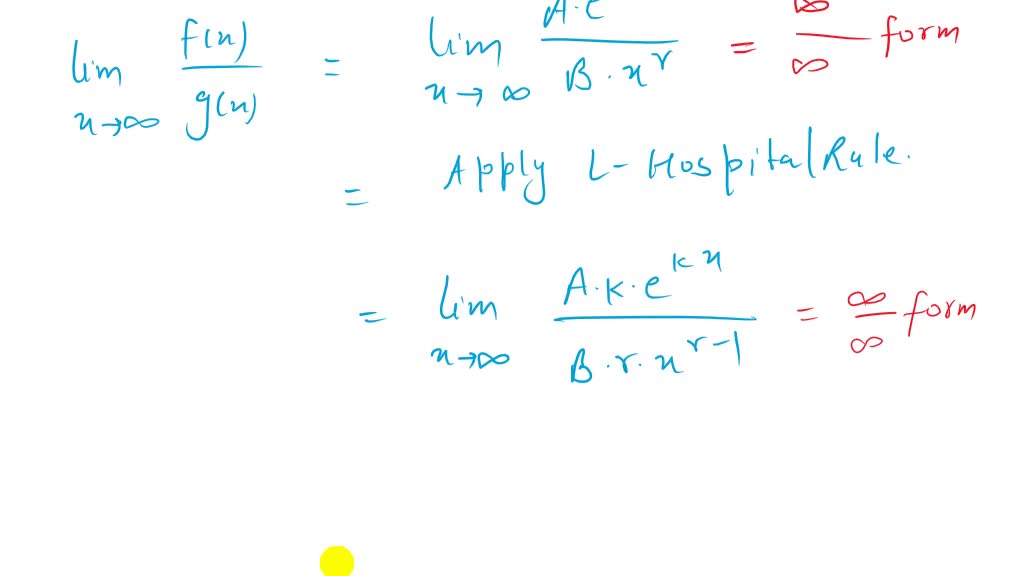 lim x→∞ f(x)/g(x) = lim x→∞ A·e/B·x^r = ∞/∞ form
= Apply L-Hospital Rule.
= lim x→∞ A·k·e^kx/B·r·x^r-1 = ∞/∞ form